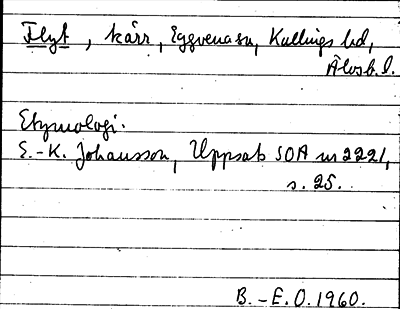 Flyt, kärr, Eggvena sn, Kullings hd,
Älvsb. l.
Etymologi.
E.-K. Johansson, Uppsats SOA nr 2221,
s. 25.
B.-E.O. 1960.